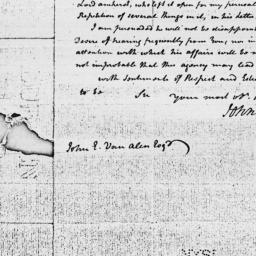 Lord amherst, who left it open for my perusal
Repetition of several things in it, in his letter
I am persuaded he will not be disappoin
Desire of hearing frequently from you, nor in
attention with which his affairs will be m
not improbable that this agency may lead
with Sentiments of Respect and Este
to be Sir your most ob.
John
John E. Van Alen Esqr.
NYSL